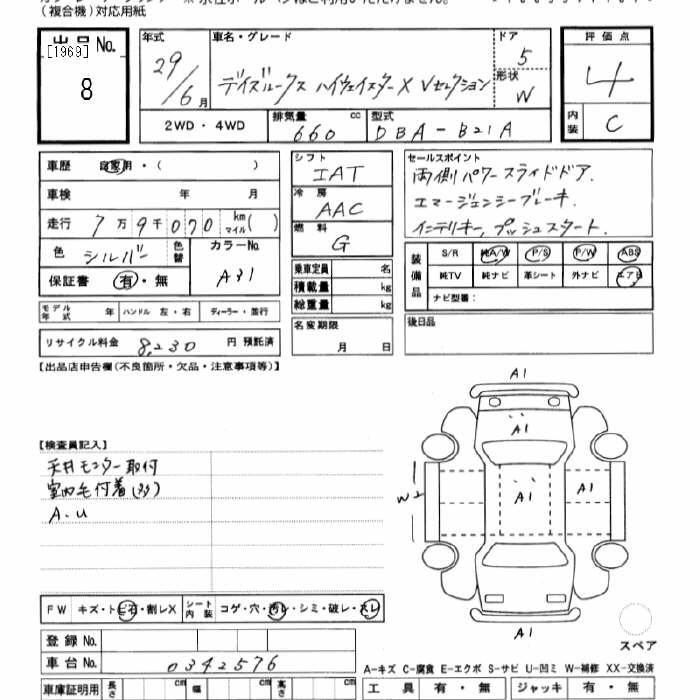 (複合機)対応用紙
出品No.
[1969]
8
年式
29/6月
車名・グレード
デイズルークス ハイウェイスターX Vセレクション
ドア
5
形状
W
評価点
4
内装
C
2WD・4WD
排気量
660 cc
型式
DBA-B21A
車歴 自家用・( )
車検 年 月
走行 7万9千070 km マイル( )
色 シルバー 色替
カラーNo.
A31
保証書 有・無
モデル年式 年 ハンドル 左・右 ディーラー・並行
リサイクル料金 8,230 円 預託済
シフト
IAT
冷房
AAC
燃料
G
乗車定員 名
積載量 kg
総重量 kg
名変期限
月 日
セールスポイント
両側パワースライドドア.
エマージェンシーブレーキ.
インテリキー, プッシュスタート.
装備品
S/R 純A/W P/S P/W ABS
純TV 純ナビ 革シート 外ナビ エアB
ナビ型番:
後日品
【出品店申告欄(不良箇所・欠品・注意事項等)】
【検査員記入】
天井モニター取付
室内毛付着(多)
A.U
A1
A1
A1
A1
W2
A1
FW キズ・トビ石・割レX シート内装 コゲ・穴・汚レ・シミ・破レ・スレ
登録No.
車台No. 0342576
スペア
A-キズ C-腐食 E-エクボ S-サビ U-凹ミ W-補修 XX-交換済
車庫証明用 長さ cm 幅 cm 高さ cm
工具 有・無 ジャッキ 有・無